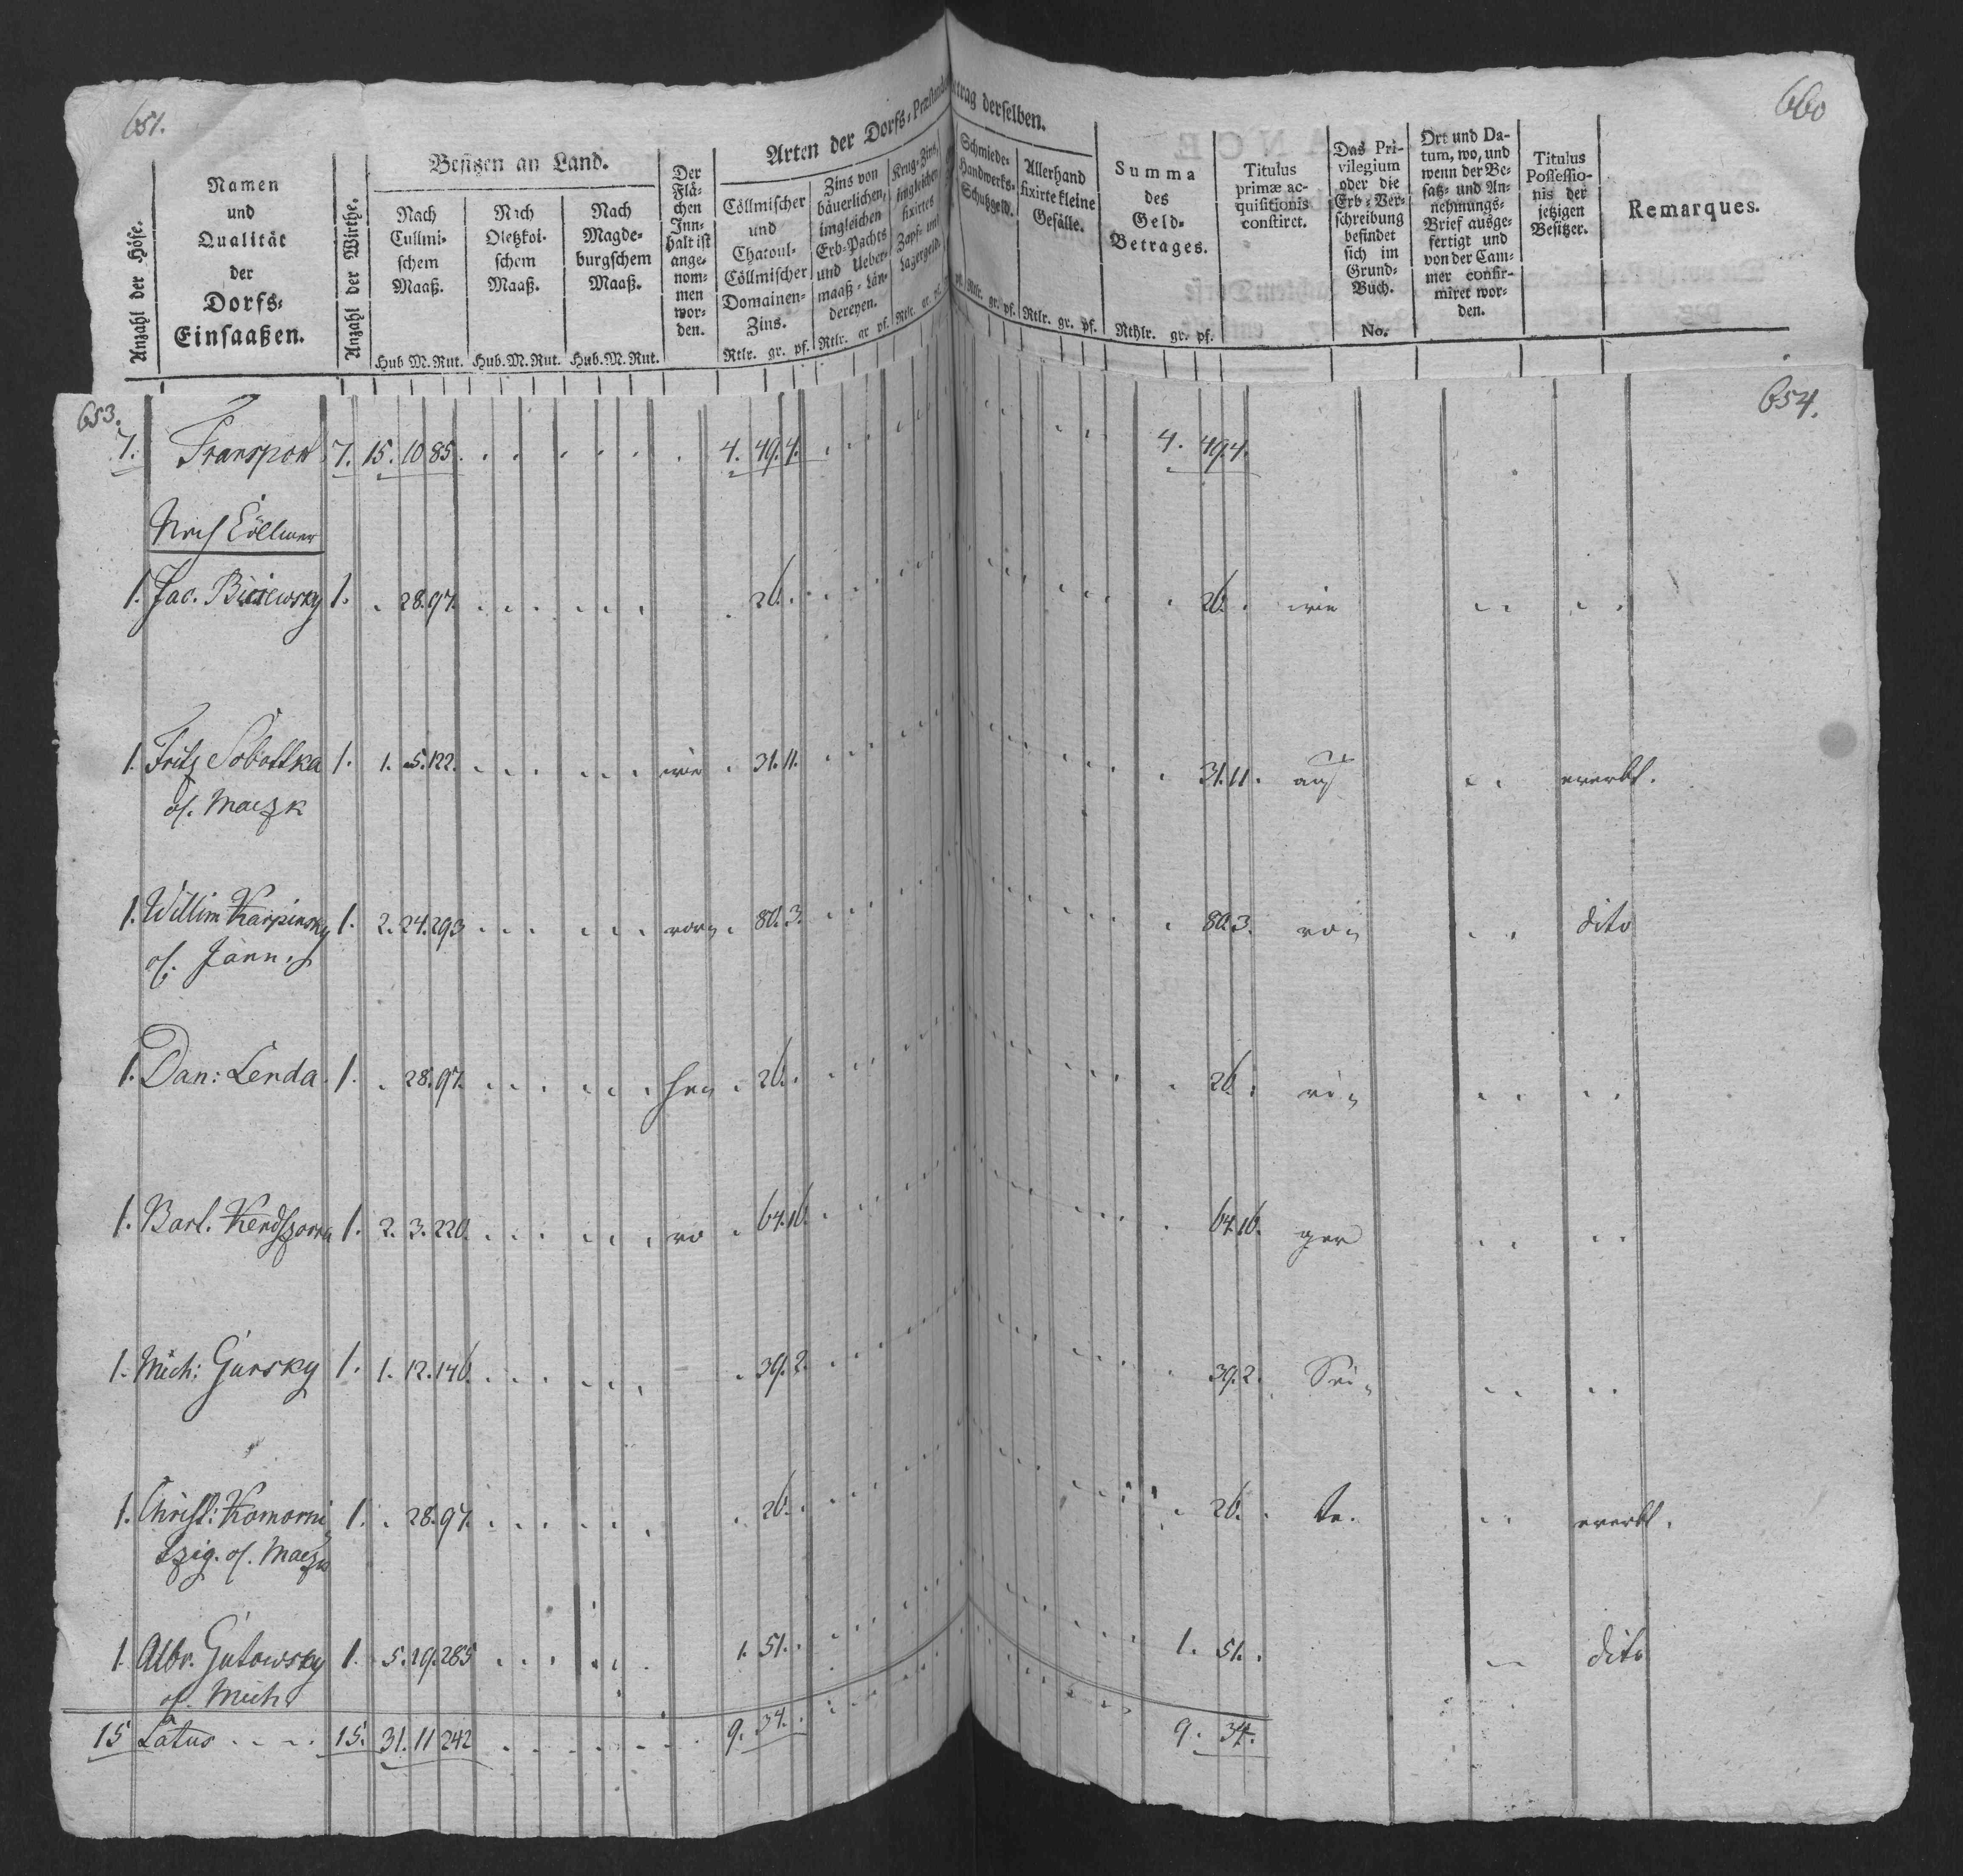 651.
660
Anzahl der Höfe.
Namen
und
Qualität
der
Dorfs-
Einsaaßen.
Anzahl der Wirthe.
Besitzen an Land.
Nach
Cullmi-
schem
Maaß.
Hub M. Rut.
Nach
Oletzkoi-
schem
Maaß.
Hub. M. Rut.
Nach
Magde-
burgschem
Maaß.
Hub. M. Rut.
Der
Flä-
chen
Inn-
halt ist
ange-
nom-
men
wor-
den.
Arten der Dorfs-Præstand
etrag derselben.
Cöllmischer
und
Chatoul-
Cöllmischer
Domainen-
Zins.
Rtlr. gr. pf.
Zins von
bäuerlichen,
imgleichen
Erb-Pachts
und Ueber-
maaß-Län-
dereyen.
Rtlr. gr pf.
Krug-Zins,
imgleichen
fixirtes
Zapf- und
Lagergeld.
Rtlr. gr. pf.
Schmiede-
Handwerks-
Schutzgeld.
Rtlr. gr. pf.
Allerhand
fixirte kleine
Gefälle.
Rtlr. gr. pf.
Summa
des
Geld-
Betrages.
Rthlr. gr. pf.
Titulus
primæ ac-
quisitionis
constiret.
Das Pri-
vilegium
oder die
Erb-Ver-
schreibung
befindet
sich im
Grund-
Buch.
No.
Ort und Da-
tum, wo, und
wenn der Be-
satz- und An-
nehmungs-
Brief ausge-
fertigt und
von der Cam-
mer confir-
miret wor-
den.
Titulus
Possessio-
nis der
jetzigen
Besitzer.
Remarques.
653.
654.
7. Transport 7. 15. 10 85. 4. 49. 4. 4. 49. 4.
Noch Cöllmer
1. Jac. 1. 28. 97. 26. 26. wie
1. Fritz Sobottka 1. 1. 5. 122. wie 31. 11. 31. 11. auf ererbt.
of. Maczk
1. Willim Karpinsky 1. 2. 24. 293 80. 3. 80. 3. dito
of. Jann.
1. Dan: Lenda 1. 28. 97. 26. 26.
1. Barl. 1. 2. 3. 220. 64. 16. 64. 16. ger
1. Mich: Gursky 1. 1. 12. 146. 39. 2. 39. 2. Sei
1. Christ: Komorni 1. 28. 97. 26. 26. te. ererbt.
tzig. of.
1. Albr. Gutowsky 1. 5. 19. 285 1. 51. 1. 51. dito
of. Mich
15 Latus 15. 31. 11 242 9. 34. 9. 34.